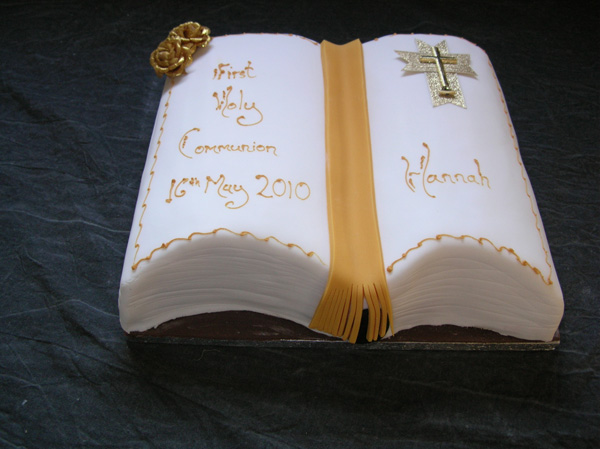 First
Holy
Communion
16th May 2010
Hannah